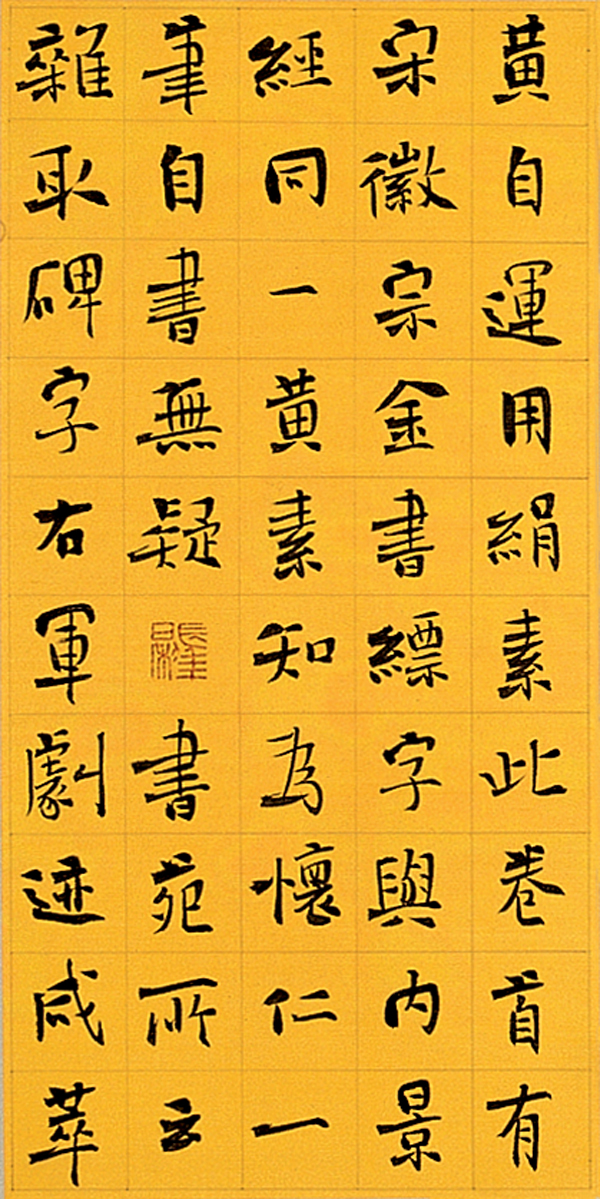 黃自運用絹素此卷首有
宋徽宗金書縹字與內景
經同一黃素知為懷仁一
筆自書無疑書苑所云
雜取碑字右軍劇迹咸萃